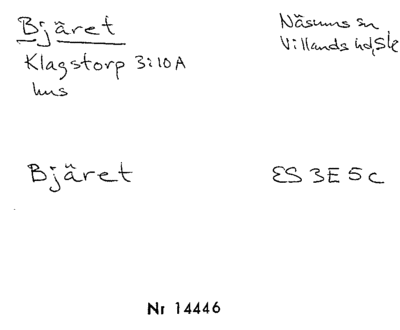 Bjäret
Näsums sn
Villands hd, Sk
Klagstorp 3:10A
hus
Bjäret
ES 3E 5c
Nr 14446